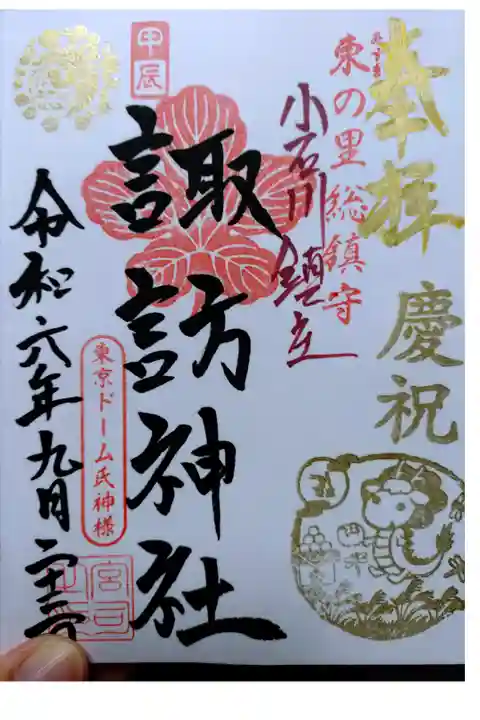 奉拝
慶祝
東の里総鎮守
小石川鎮立
諏訪神社
甲辰
東京ドーム氏神様
令和六年九月二十
宮司